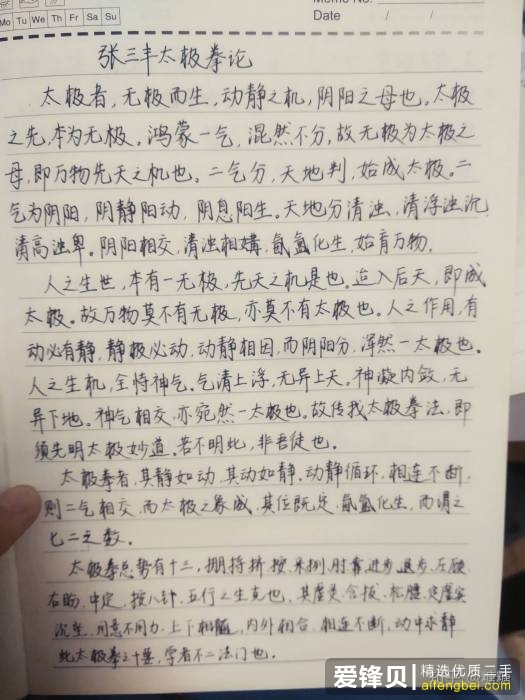 Memo No.
Mo Tu We Th Fr Sa Su
Date / /
张三丰太极拳论
太极者,无极而生,动静之机,阴阳之母也。太极
之先,本为无极。鸿蒙一气,混然不分,故无极为太极之
母,即万物先天之机也。二气分,天地判,始成太极。二
气为阴阳,阴静阳动,阴息阳生。天地分清浊,清浮浊沉,
清高浊卑。阴阳相交,清浊相媾,氤氲化生,始育万物。
人之生世,本有一无极,先天之机是也。迨入后天,即成
太极。故万物莫不有无极,亦莫不有太极也。人之作用,有
动必有静,静极必动,动静相因,而阴阳分,浑然一太极也。
人之生机,全恃神气。气清上浮,无异上天。神凝内敛,无
异下地。神气相交,亦宛然一太极也。故传我太极拳法,即
须先明太极妙道,若不明此,非吾徒也。
太极拳者,其静如动,其动如静。动静循环,相连不断,
则二气相交,而太极之象成,其位既定,氤氲化生,而谓之
七二之数。
太极拳总势有十三,掤捋挤按,采挒,肘靠,进步,退步,左顾,
右盼,中定,按八卦,五行之生克也。其虚灵,含拔,松腰,定虚实
沉坠,用意不用力,上下相随,内外相合,相连不断,动中求静
此太极拳之十要,学者不二法门也。
爱锋贝
精选优质二手
aifengbei.com